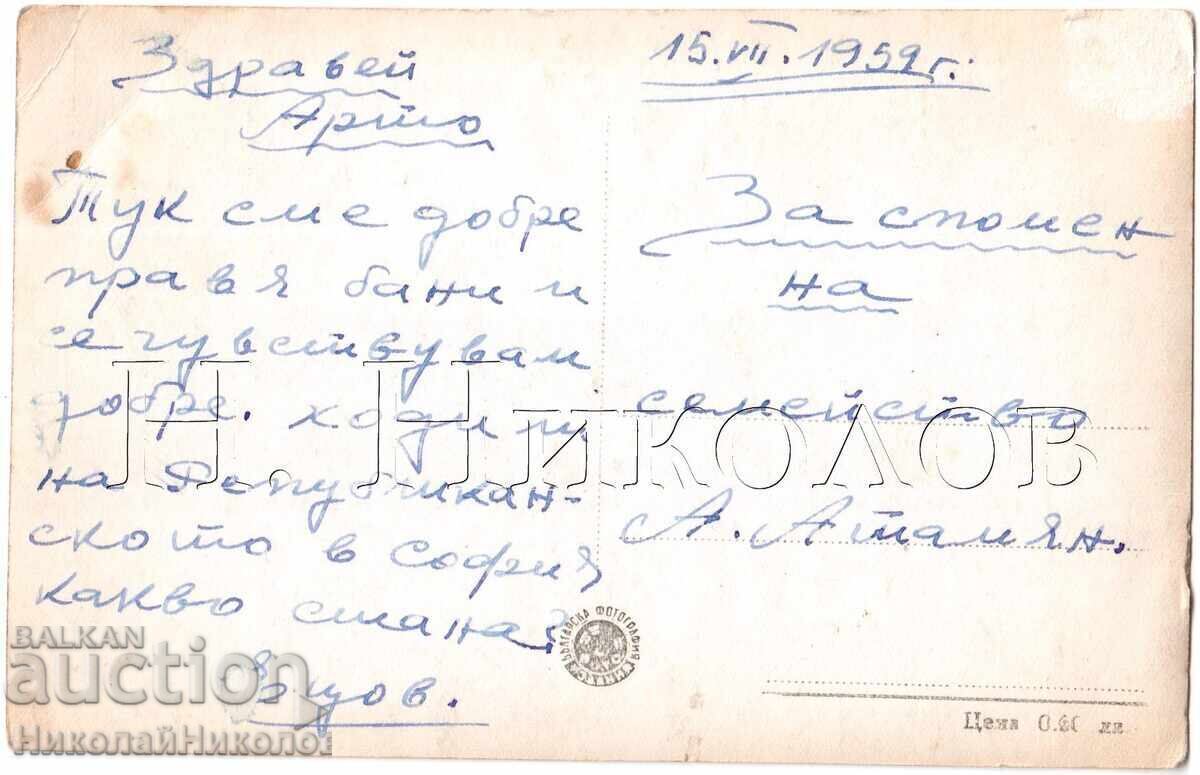 Здравей
Арто
Тук сме добре
правя бани и
се чувствувам
добре. ходи ли
на Републикан-
ското в София
какво стана?
15.VII.1959г.
За спомен
на
семейство
А. Атамян.
БЪЛГАРСКА ФОТОГРАФИЯ
Цена 0.40 лв
Н. НИКОЛОВ
BALKAN
auction
НиколайНиколов